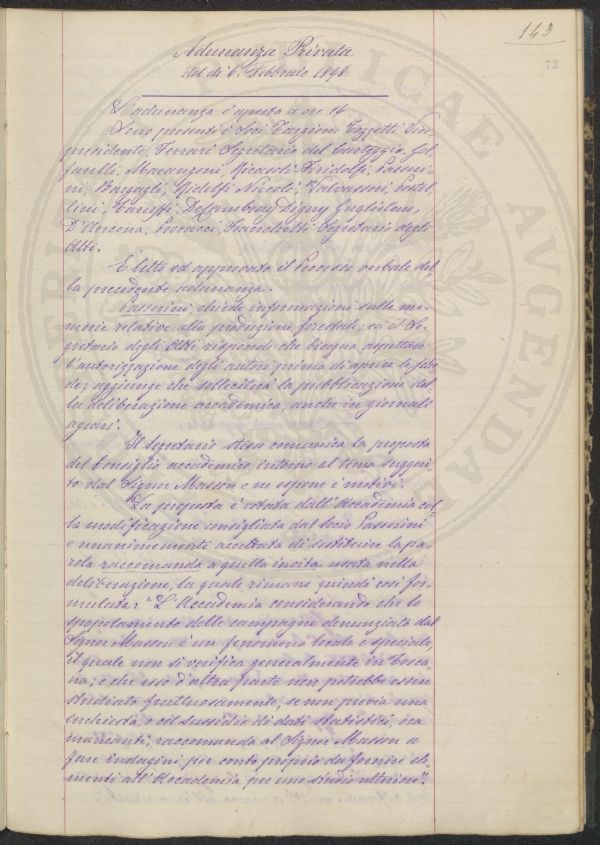 143
73
Adunanza Privata
del dì 6. Febbraio 1898
L'adunanza è aperta a ore 14
Sono presenti i Soci Targioni Tozzetti Vice
presidente, Ferrari Segretario del Carteggio, Gal-
farelli, Marangoni, Ricasoli-Firidolfi, Passeri-
ni, Bargagli, Ridolfi Niccolò, Valvassori, Pestel-
lini, Caruso, De Cambray Digny Guglielmo,
D'Ancona, Franchetti Segretario degli
Atti.
È letto ed approvato il Processo verbale del-
la precedente adunanza.
Passerini, chiede informazioni sulle me-
morie relative alla produzione forestale, ed il Se-
gretario degli Atti risponde che bisogna aspettare
l'autorizzazione degli autori prima di aprire le sche
de; aggiunge che solleciterà la pubblicazione del
la deliberazione accademica, anche in giornali
agrari.
Il segretario stesso comunica la proposta
del Consiglio accademico intorno al tema suggeri-
to dal Signor Masson e ne espone i motivi.
La proposta è votata dall'Accademia col
la modificazione consigliata dal Socio Passerini
e unanimemente accettata di sostituire la pa-
rola raccomanda a quella incita usata nella
deliberazione, la quale rimane quindi così for-
mulata: "L'Accademia considerando che lo
spopolamento delle campagne denunziato dal
Signor Masson è un fenomeno locale e speciale,
il quale non si verifica generalmente in Tosca-
na; e che esso d'altra parte non potrebbe essere
studiato fruttuosamente, se non previa una
inchiesta, e col sussidio di dati statistici, ora
mancanti; raccomanda al Signor Masson a
fare indagini per conto proprio da fornire ele-
menti all'Accademia per uno studio ulteriore".